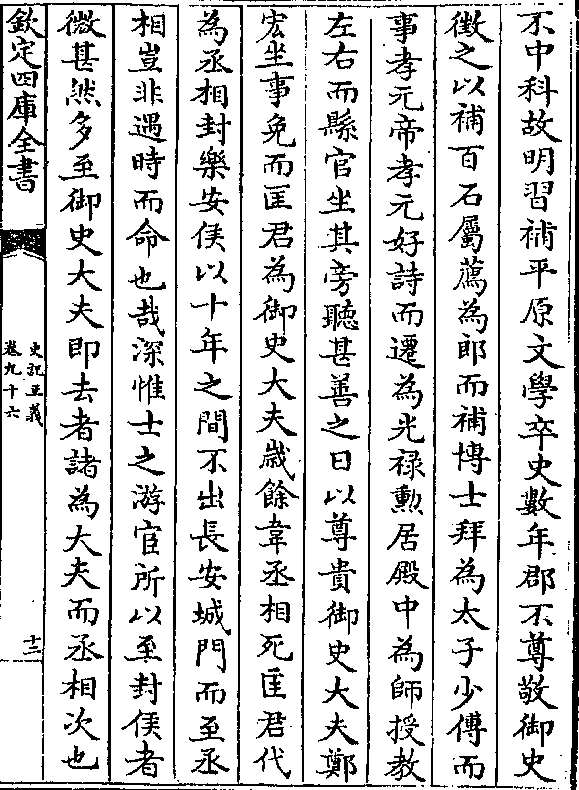 不中科故明習補平原文學卒史數年郡不尊敬御史
徴之以補百石屬薦為郎而補博士拜為太子少傅而
事孝元帝孝元好詩而遷為光禄勲居殿中為師授教
左右而縣官坐其旁聽甚善之日以尊貴御史大夫鄭
宏坐事免而匡君為御史大夫嵗餘韋丞相死匡君代
為丞相封樂安侯以十年之間不出長安城門而至丞
相豈非遇時而命也哉深惟士之游宦所以至封侯者
微甚然多至御史大夫即去者諸為大夫而丞相次也
欽定四庫全書
史記正義
卷九十六
十三